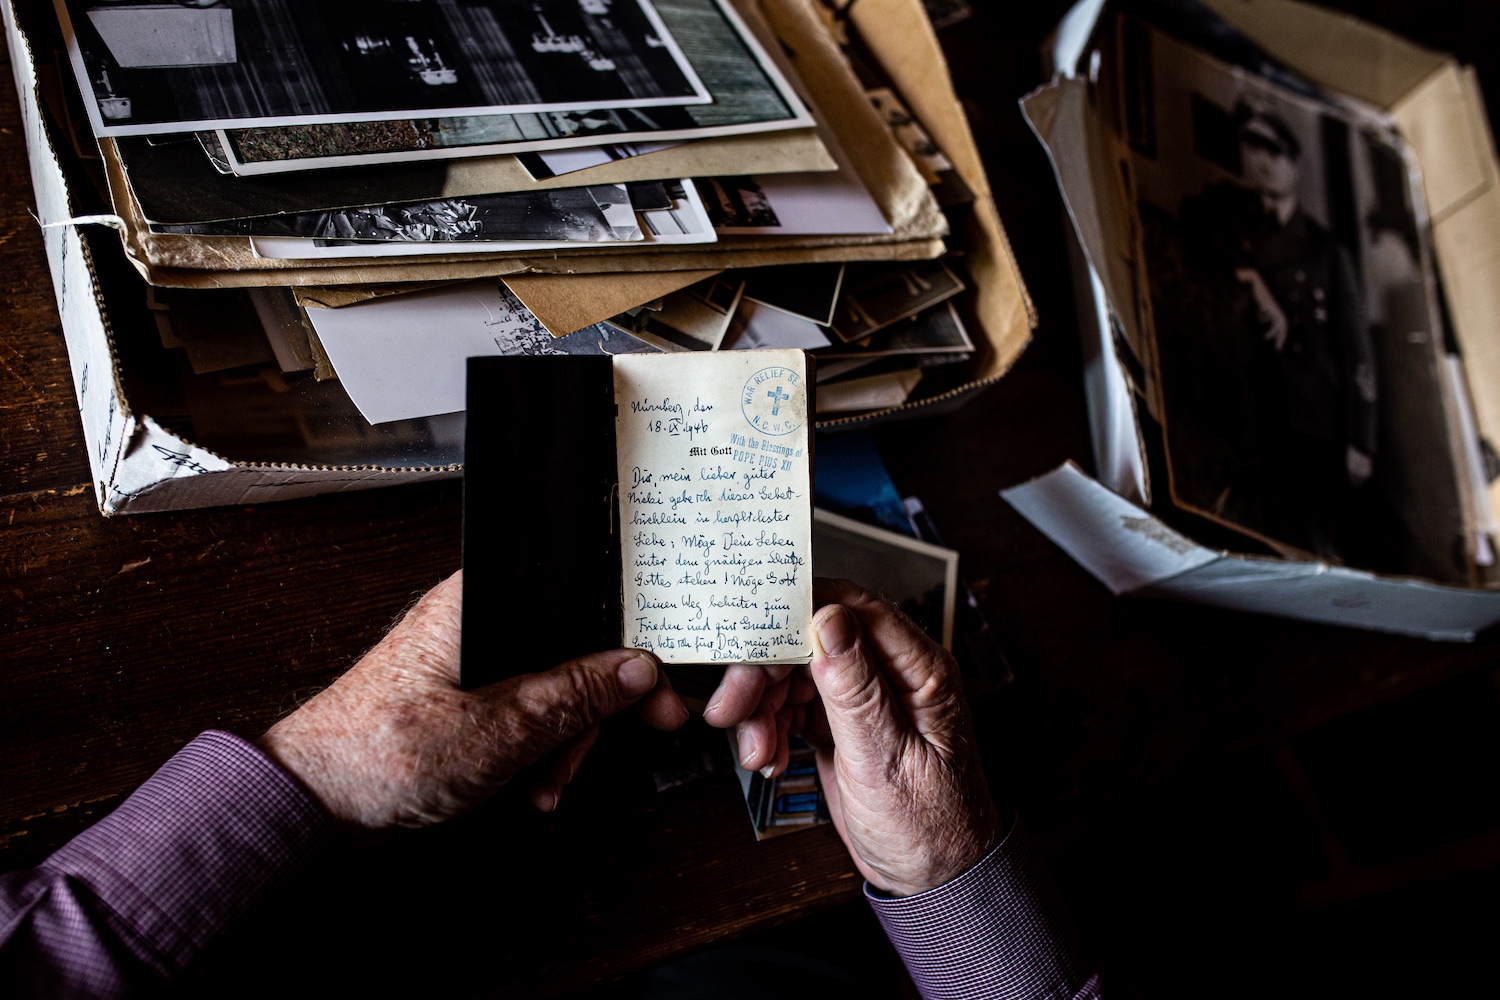 Nürnberg, den
18. IX. 1946
WAR RELIEF SE
N.C.W.C.
With the Blessings of
POPE PIUS XII
Mit Gott
Dir, mein lieber, guter
Nicki gebe ich dieses Gebet-
büchlein in herzlichster
Liebe; Möge Dein Leben
unter dem gnädigen Schutze
Gottes stehen! Möge Gott
Deinen Weg behüten zum
Frieden und zur Gnade!
Ewig bete ich für Dich, mein Nicki.
Dein Vati.